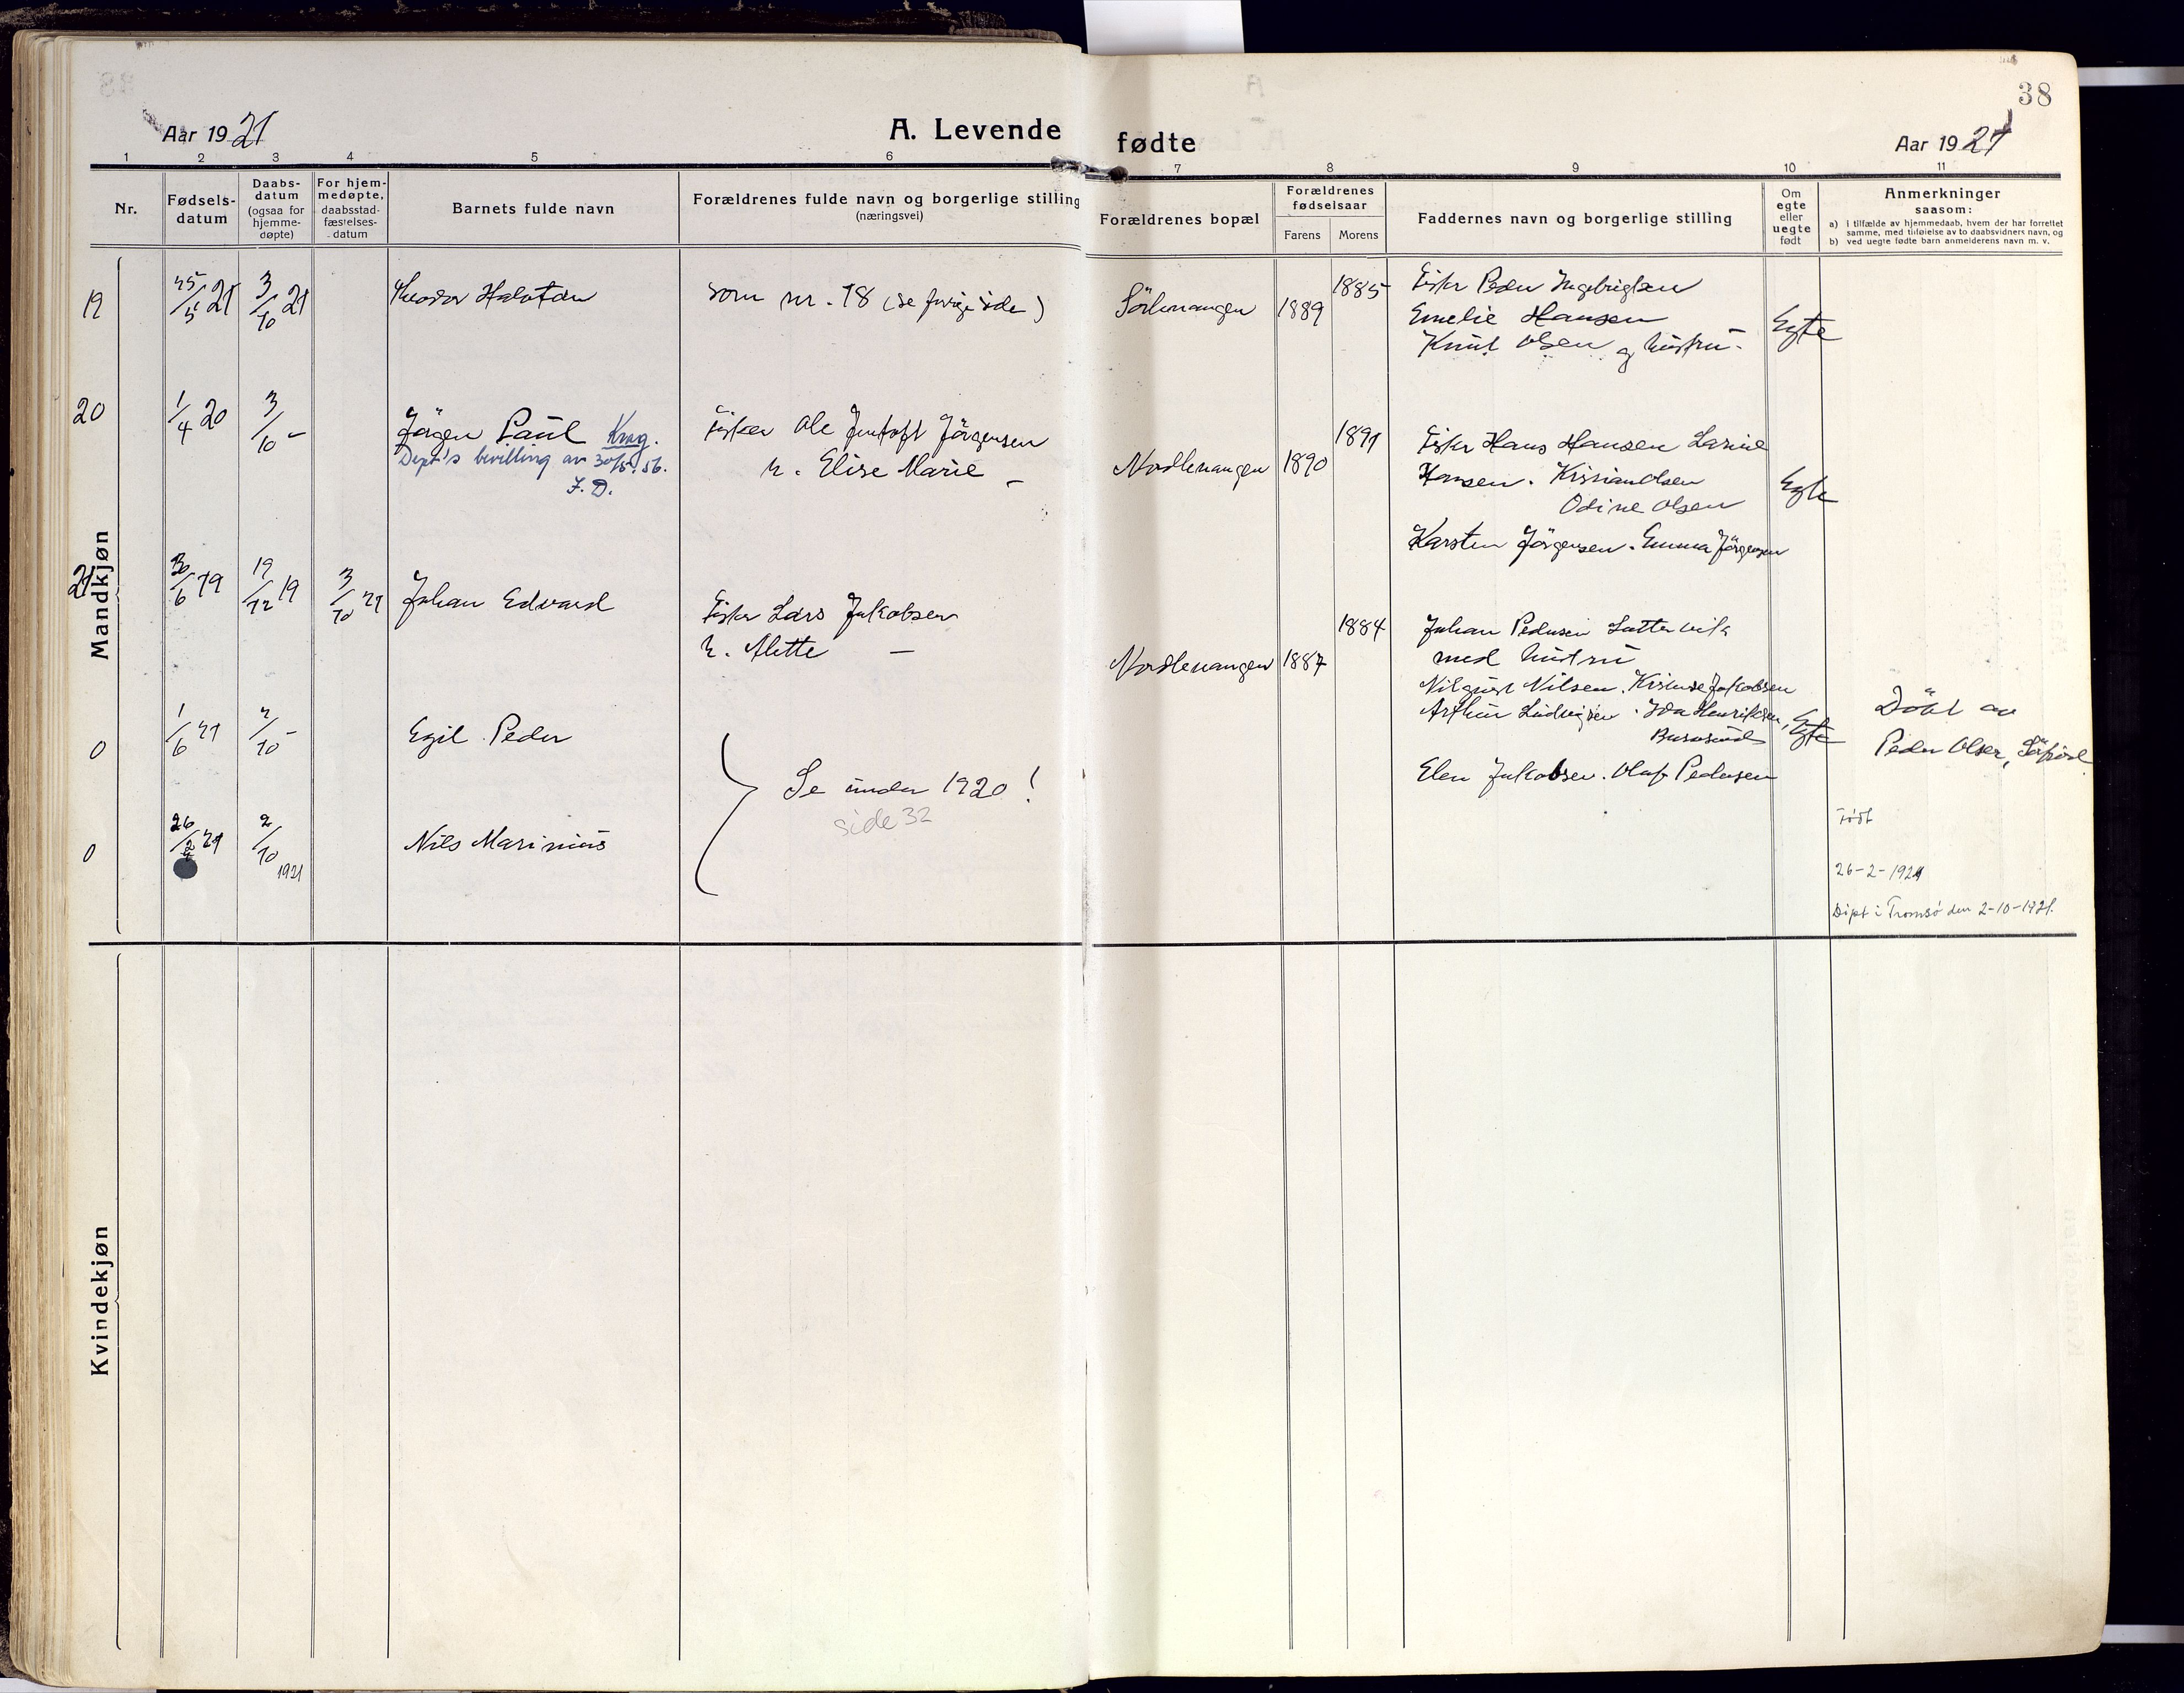 38
Aar 1921
A. Levende fødte
Aar 1921
1 2 3 4 5 6 7 8 9 10 11
Nr.
Fødsels-
datum
Daabs-
datum
(ogsaa for
hjemme-
døpte)
For hjem-
medøpte,
daabsstad-
fæstelses-
datum
Barnets fulde navn
Forældrenes fulde navn og borgerlige stilling
(næringsvei)
Forældrenes bopæl
Forældrenes
fødselsaar
Farens Morens
Faddernes navn og borgerlige stilling
Om
egte
eller
uegte
født
Anmerkninger
saasom:
a) i tilfælde av hjemmedaab, hvem der har forrettet
samme, med tilføielse av to daabsvidners navn, og
b) ved uegte fødte barn anmelderens navn m. v.
Mandkjøn
19
25/5 21
3/10 21
Theodor Halvdan
som nr. 18 (se forrige side)
1889
1885
Fisker Peder Ingebrigtsen
Emelie Hansen
Knut Olsen og hustru
Egte
20
1/4 20
3/10 -
Jörgen Paul Krag.
Dept's bevilling av 30/5. 56.
F. D.
Fisker Ole Jentoft Jörgensen
h. Elise Marie -
Nordlenangen
1890
1891
Fisker Hans Hansen Larine
Hansen. Kristian Olsen
Odine Olsen
Karsten Jörgensen. Emma Jörgensen
Egte
21
30/6 19
19/12 19
3/10 21
Johan Edvard
Fisker Lars Jakobsen
h. Alette -
Nordlenangen
1887
1884
Johan Pedersen
med hustru
Nilsen. Jakobsen
Arthur Ludvigsen. Ida Henriksen,
Elen Jakobsen. Olaf Pedersen
Egte
Döbt av
Peder Olsen, Sörfjord.
0
1/6 21
2/10 -
Egil Peder
Se under 1920!
side 32
0
26/2 21
2/10
1921
Nils Marinius
Född
26-2-1921
Döpt i Tromsö den 2-10-1921.
Kvindekjøn